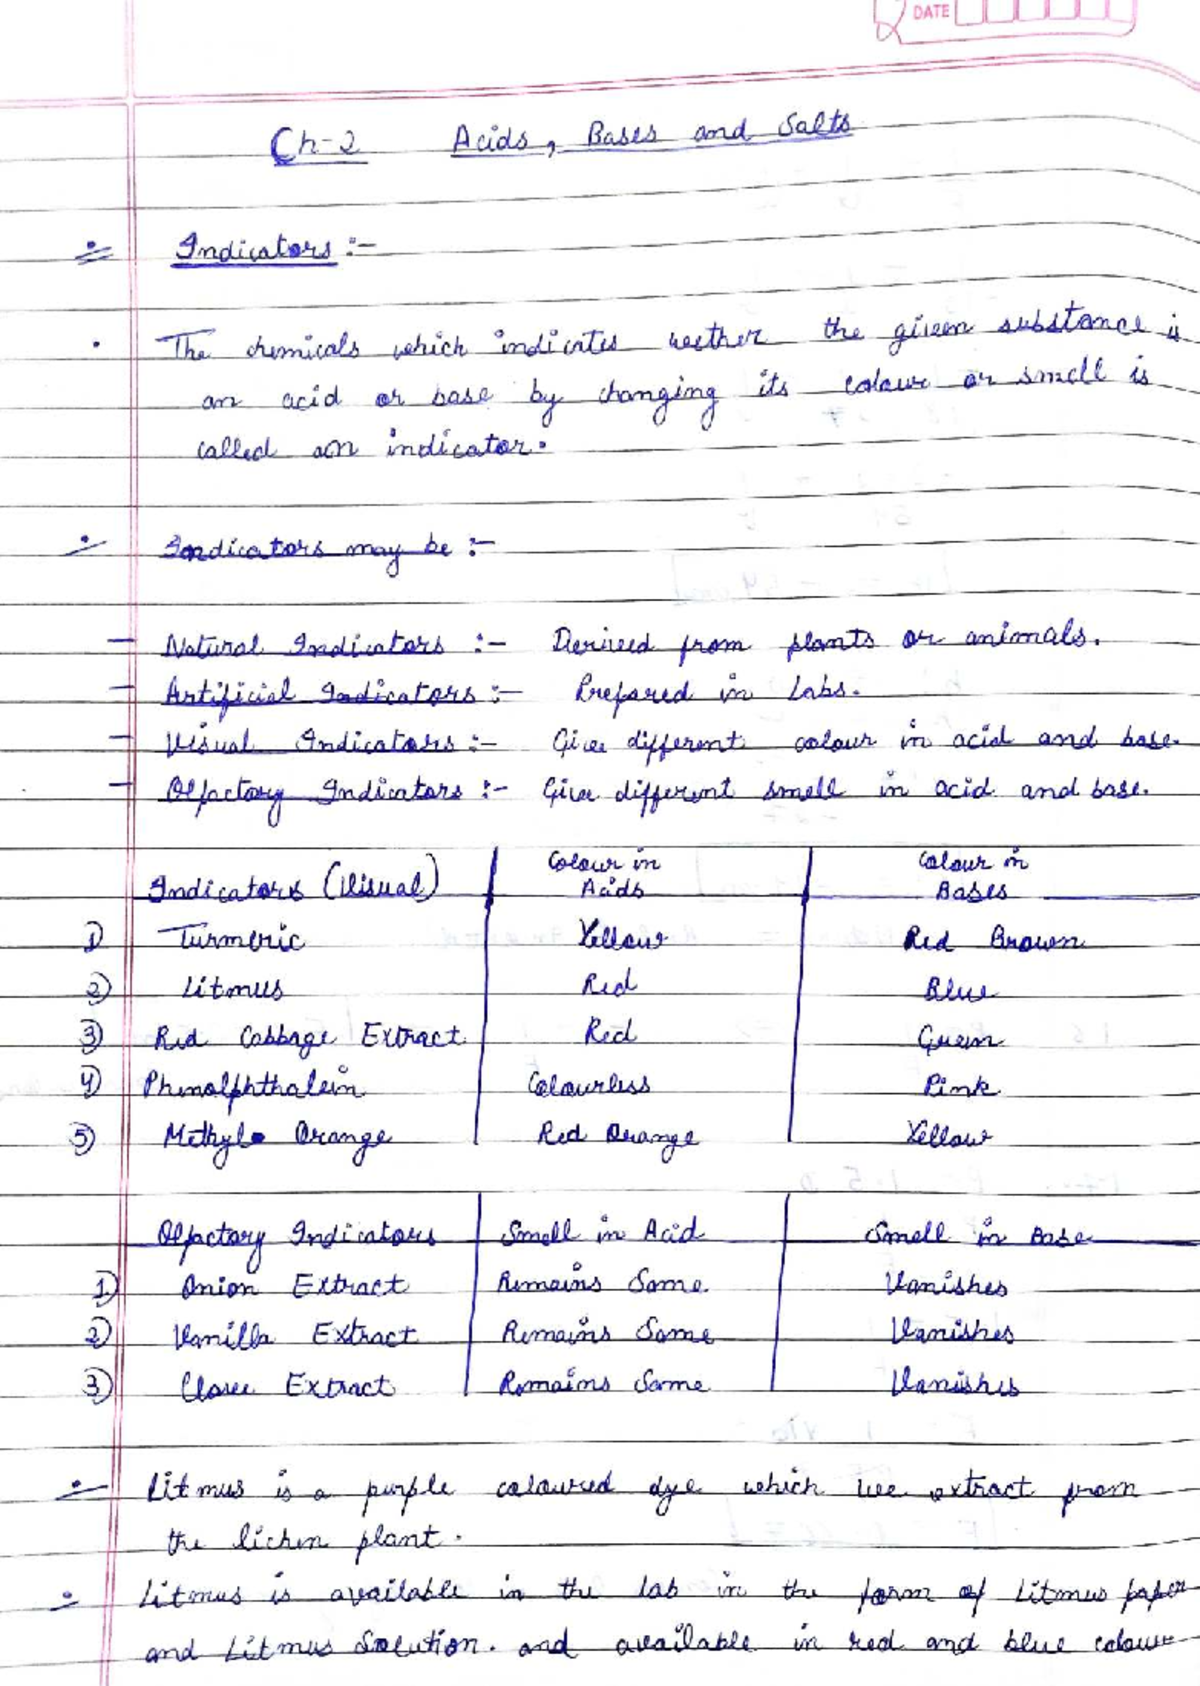 DATE
Ch-2 Acids, Bases and Salts
Indicators :-
The chemicals which indicates weether the given substance is
an acid or base by changing its colour or smell is
called an indicator.
Indicators may be :-
- Natural Indicators :- Derived from plants or animals.
- Artificial Indicators :- Prepared in Labs.
- Visual Indicators :- Give different colour in acid and base.
- Olfactory Indicators :- Give different smell in acid and base.
Indicators (Visual) Colour in Acids Colour in Bases
1) Turmeric Yellow Red Brown
2) Litmus Red Blue
3) Red Cabbage Extract Red Green
4) Phenolphthalein Colourless Pink
5) Methyl Orange Red Orange Yellow
Olfactory Indicators Smell in Acid Smell in Base
1) Onion Extract Remains Same Vanishes
2) Vanilla Extract Remains Same Vanishes
3) Clove Extract Remains Same Vanishes
Litmus is a purple coloured dye which we extract from
the lichen plant.
Litmus is available in the lab in the form of Litmus paper
and Litmus Solution. and available in red and blue colour